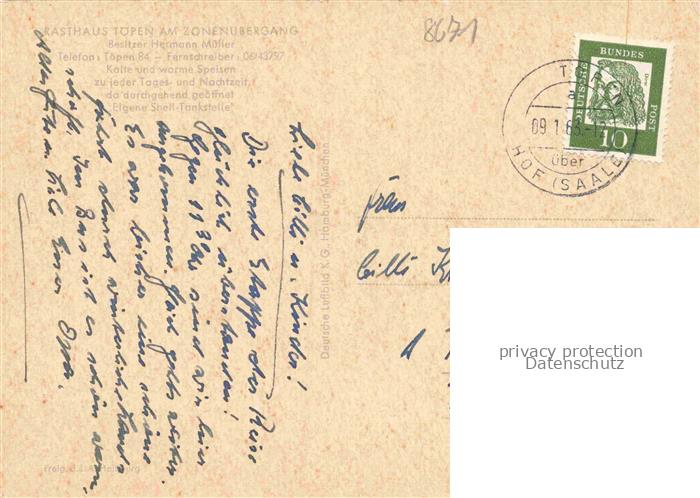 RASTHAUS TÖPEN AM ZONENÜBERGANG
Besitzer Hermann Müller
Telefon: Töpen 84 — Fernschreiber: 0643797
Kalte und warme Speisen
zu jeder Tages- und Nachtzeit,
da durchgehend geöffnet
"Eigene Shell-Tankstelle"
8671
DEUTSCHE BUNDESPOST
Dürer
10
09.1.63.-1
über
HOF (SAALE)
Liebe Cilli u. Kinder!
Die erste Etappe der Reise
glücklich überstanden!
Gegen 11 30 Uhr sind wir hier
angekommen. Gleich gehts weiter.
Es war bisher eine schöne
Fahrt durch winterliches Land
Im Bus ist es schön warm.
Euer Opa.
Frau
Cilli
Deutsche Luftbild K. G. Hamburg-München
privacy protection
Datenschutz